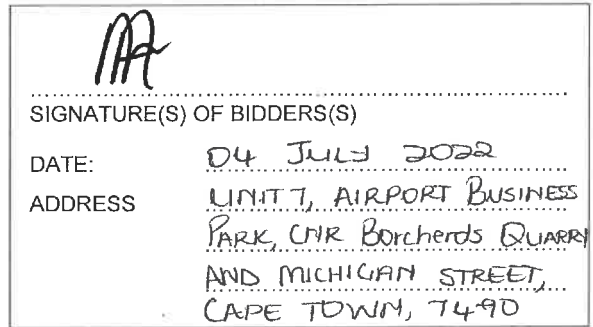 SIGNATURE(S) OF BIDDERS(S)
DATE: 04 JULY 2022
ADDRESS UNIT 7, AIRPORT BUSINESS
PARK, CNR Borcherds QUARRY
AND MICHIGAN STREET,
CAPE TOWN, 7490